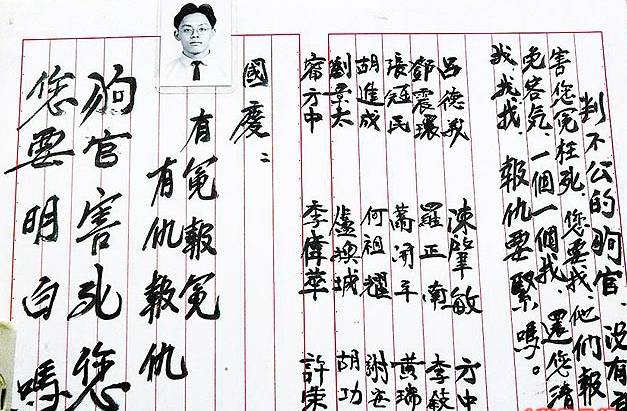 判不公的狗官、沒有
害您冤枉死、您要找、他們報
免客氣、一個一個找、還您清
找找找 報仇要緊嗎。
呂德 陳肇敏 方中
鄧震環 羅正南 李
張冠民 蕭開平 黃瑞
胡進成 何祖耀 謝
劉景太 盧換城 胡功
甯方中 李偉華 許榮
國慶:
有冤報冤
有仇報仇
狗官害死您
您要明白嗎